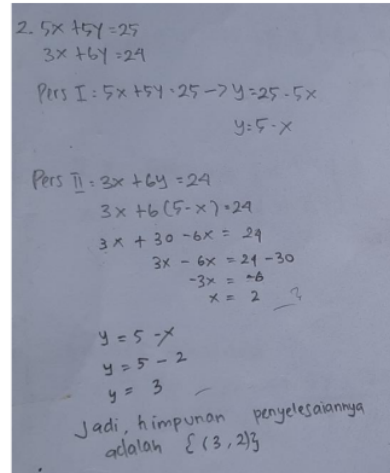 2. 5x + 5y = 25
3x + 6y = 24
Pers I : 5x + 5y = 25 -> y = 25 - 5x
y = 5 - x
Pers II : 3x + 6y = 24
3x + 6 (5 - x) = 24
3x + 30 - 6x = 24
3x - 6x = 24 - 30
-3x = -6
x = 2
y = 5 - x
y = 5 - 2
y = 3
Jadi, himpunan penyelesaiannya
adalah {(3,2)}